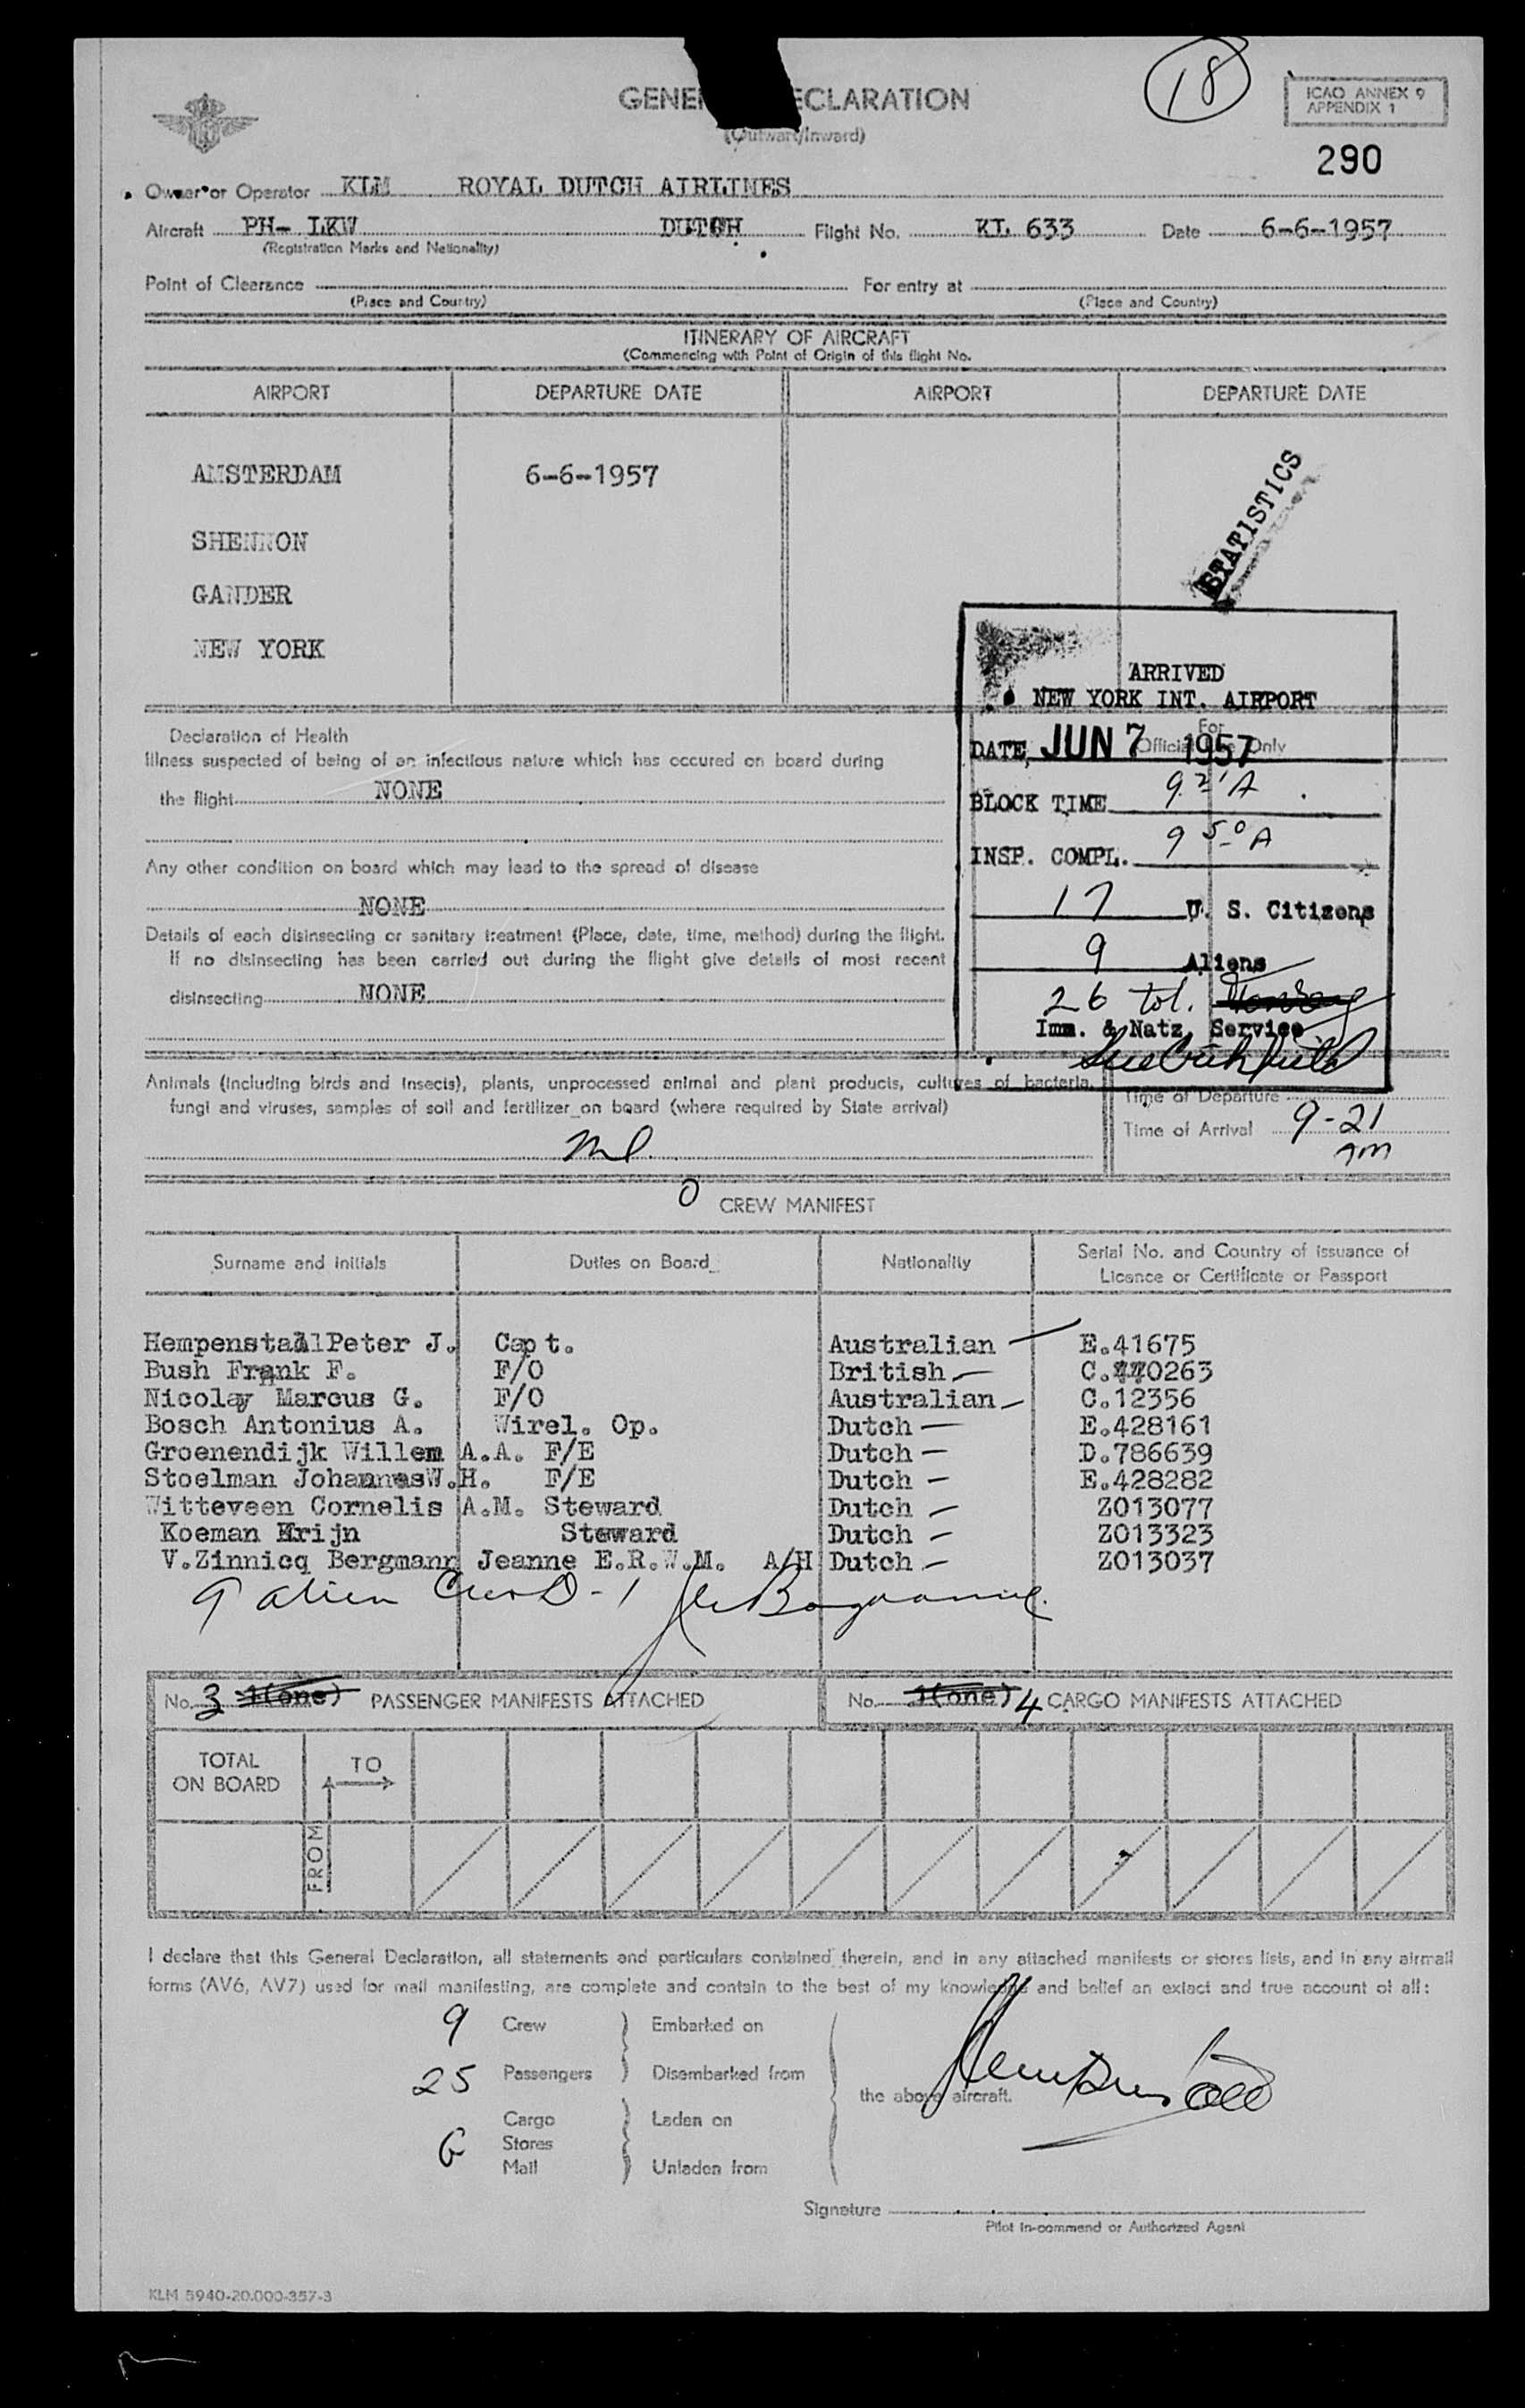 18
ICAO ANNEX 9
APPENDIX 1
GENE ECLARATION
(Outward/Inward)
290
Owner or Operator KLM ROYAL DUTCH AIRLINES
Aircraft PH- LKW DUTCH Flight No. KL 633 Date 6-6-1957
(Registration Marks and Nationality)
Point of Clearance For entry at
(Place and Country) (Place and Country)
ITINERARY OF AIRCRAFT
(Commencing with Point of Origin of this flight No.
AIRPORT DEPARTURE DATE AIRPORT DEPARTURE DATE
AMSTERDAM 6-6-1957
STATISTICS
SHENNON
GANDER
NEW YORK
ARRIVED
NEW YORK INT. AIRPORT
For
Official Use Only
DATE, JUN 7 1957
BLOCK TIME 9 21 A
INSP. COMPL. 9 50 A
17 U. S. Citizens
9 Aliens
26 tot.
Imm. & Natz. Service
Declaration of Health
Illness suspected of being of an infectious nature which has occured on board during
the flight NONE
Any other condition on board which may lead to the spread of disease
NONE
Details of each disinsecting or sanitary treatment (Place, date, time, method) during the flight.
If no disinsecting has been carried out during the flight give details of most recent
disinsecting NONE
Animals (including birds and insects), plants, unprocessed animal and plant products, cultures of bacteria,
fungi and viruses, samples of soil and fertilizer on board (where required by State arrival)
Time of Departure
Time of Arrival 9-21
am
CREW MANIFEST
Surname and initials Duties on Board Nationality Serial No. and Country of issuance of
Licence or Certificate or Passport
Hempenstall Peter J. Capt. Australian E.41675
Bush Frank F. F/O British C.440263
Nicolay Marcus G. F/O Australian C.12356
Bosch Antonius A. Wirel. Op. Dutch E.428161
Groenendijk Willem A.A. F/E Dutch D.786639
Stoelman Johannes W.H. F/E Dutch E.428282
Witteveen Cornelis A.M. Steward Dutch Z013077
Koeman Krijn Steward Dutch Z013323
V.Zinnicq Bergmann Jeanne E.R.W.M. A/H Dutch Z013037
9 alien Crew D-1
No. 3 1(one) PASSENGER MANIFESTS ATTACHED No. 1(one) 4 CARGO MANIFESTS ATTACHED
TOTAL
ON BOARD
TO
FROM
I declare that this General Declaration, all statements and particulars contained therein, and in any attached manifests or stores lists, and in any airmail
forms (AV6, AV7) used for mail manifesting, are complete and contain to the best of my knowledge and belief an exiact and true account of all:
9 Crew Embarked on
25 Passengers Disembarked from
the above aircraft.
Cargo Laden on
Stores
Mail Unladen from
Signature
Pilot in-command or Authorized Agent
KLM 5940-20.000-357-3